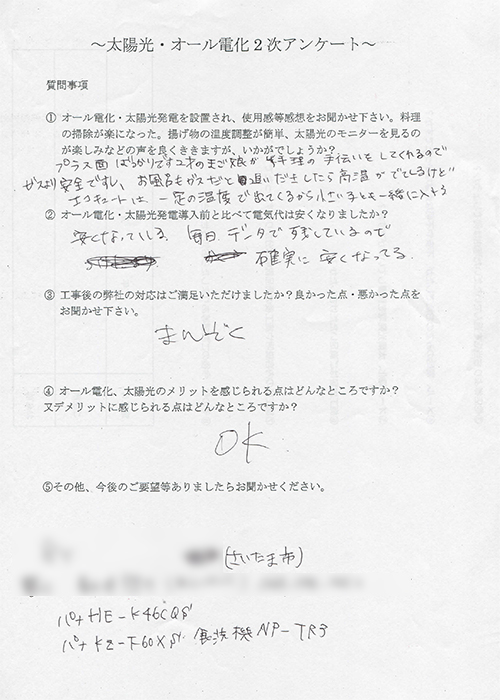 ～太陽光・オール電化２次アンケート～
質問事項
① オール電化・太陽光発電を設置され、使用感等感想をお聞かせ下さい。料理
の掃除が楽になった。揚げ物の温度調整が簡単、太陽光のモニターを見るの
が楽しみなどの声を良くききますが、いかがでしょうか？
プラス面ばかりです2才のまご娘が料理の手伝いをしてくれるので
ガスより安全ですし、お風呂もガスだと追いだきしたら高温がでてくるけど
エコキュートは一定の温度で出てくるから小さい子とも一緒に入れる
② オール電化・太陽光発電導入前と比べて電気代は安くなりましたか？
安くなっている 毎日データで残しているので
確実に安くなってる
③ 工事後の弊社の対応はご満足いただけましたか？良かった点・悪かった点を
お聞かせ下さい。
まんぞく
④ オール電化、太陽光のメリットを感じられる点はどんなところですか？
又デメリットに感じられる点はどんなところですか？
OK
⑤その他、今後のご要望等ありましたらお聞かせください。
(さいたま市)
パナHE-K46CQS
パナKZ-T60XS 食洗機NP-TR3